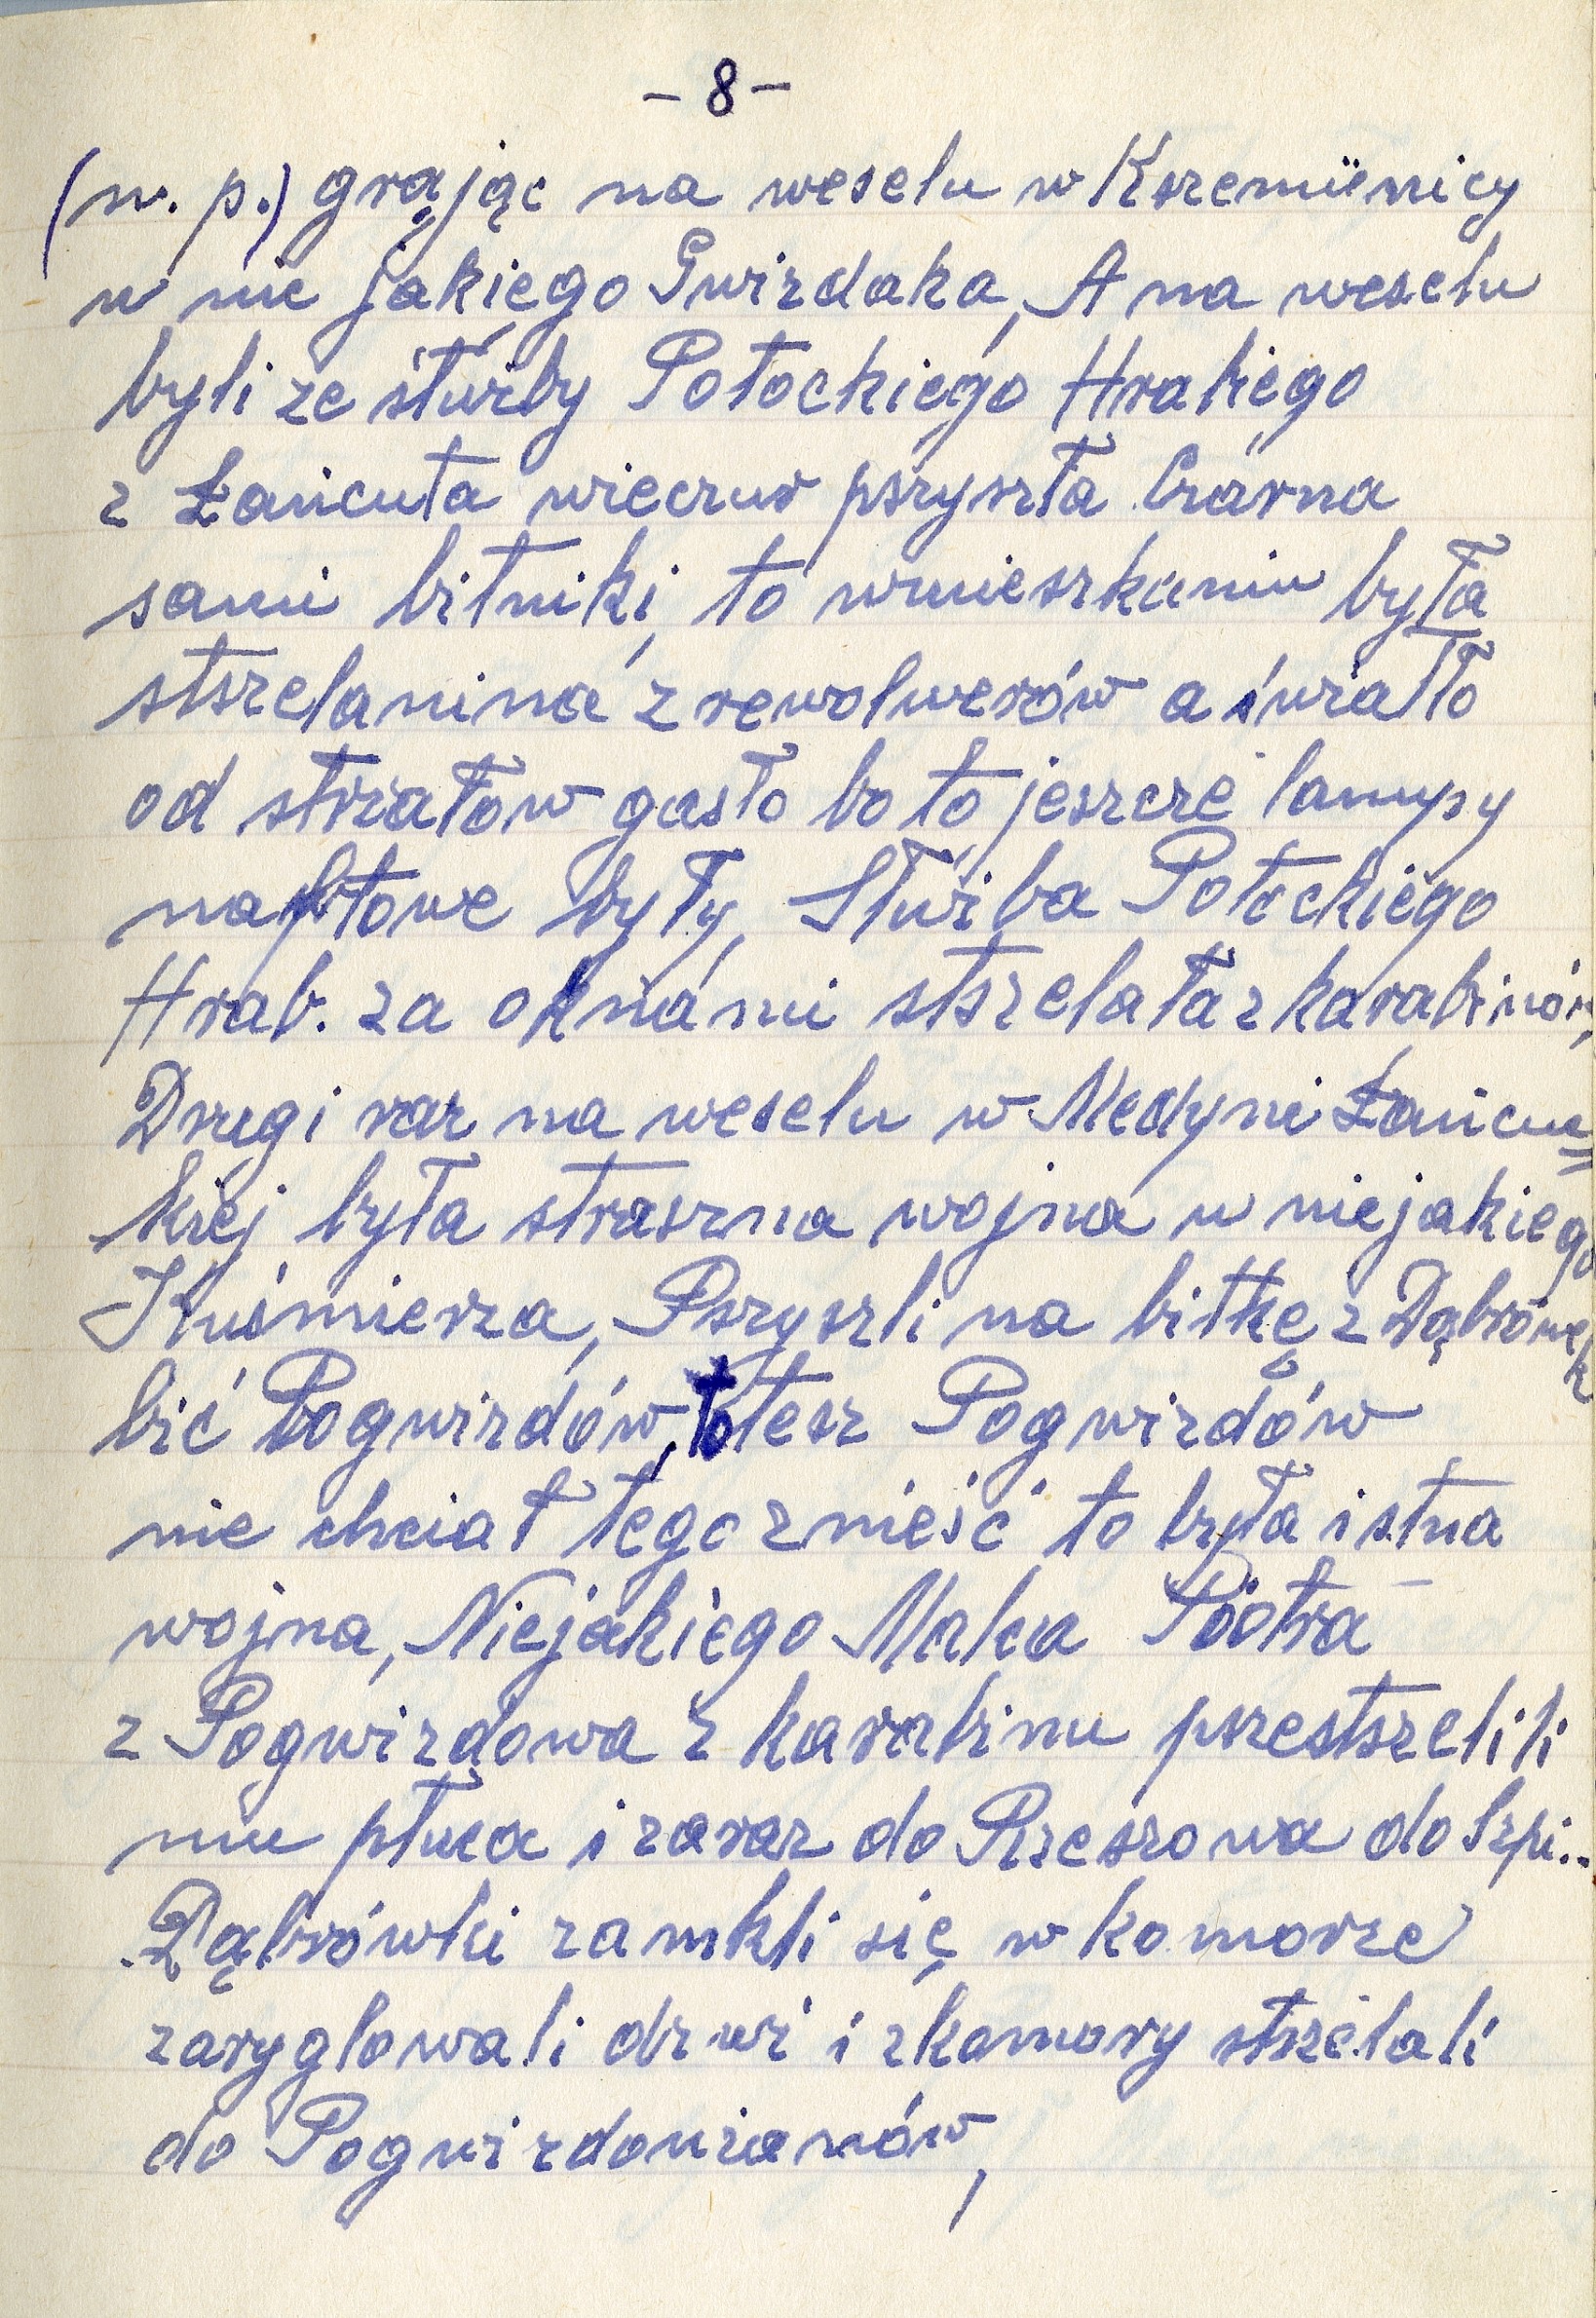 - 8 -
(n. p.) grając na weselu w Kszemienicy
u nie jakiego Gwizdaka, A na weselu
byli ze służby Potockiego Hrabiego
z Łańcuta wieczur pszyszła Czarna
sami bitniki, to wmieszkaniu była
stszelanina z rewolwerów a światło
od strzałów gasło bo to jeszcze lampy
naftowe były, Służba Potockiego
Hrab. za oknami stszelała z karabinów,
Drugi raz na weselu w Medyni Łańcu=
kiej była straszna wojna u niejakiego
Kuśmierza, Pszyszli na bitkę z Dąbrówek
bić Pogwizdów, to tesz Pogwizdów
nie chciał tego znieść to była istna
wojna, Niejakiego Maka Piotra
z Pogwizdowa z karabinu pszestszelili
mu płuca i zaraz do Rzeszowa do Szpi..
Dąbrówki zamkli się w komorze
zaryglowali drzwi i zkomory strzelali
do Pogwizdowianów,